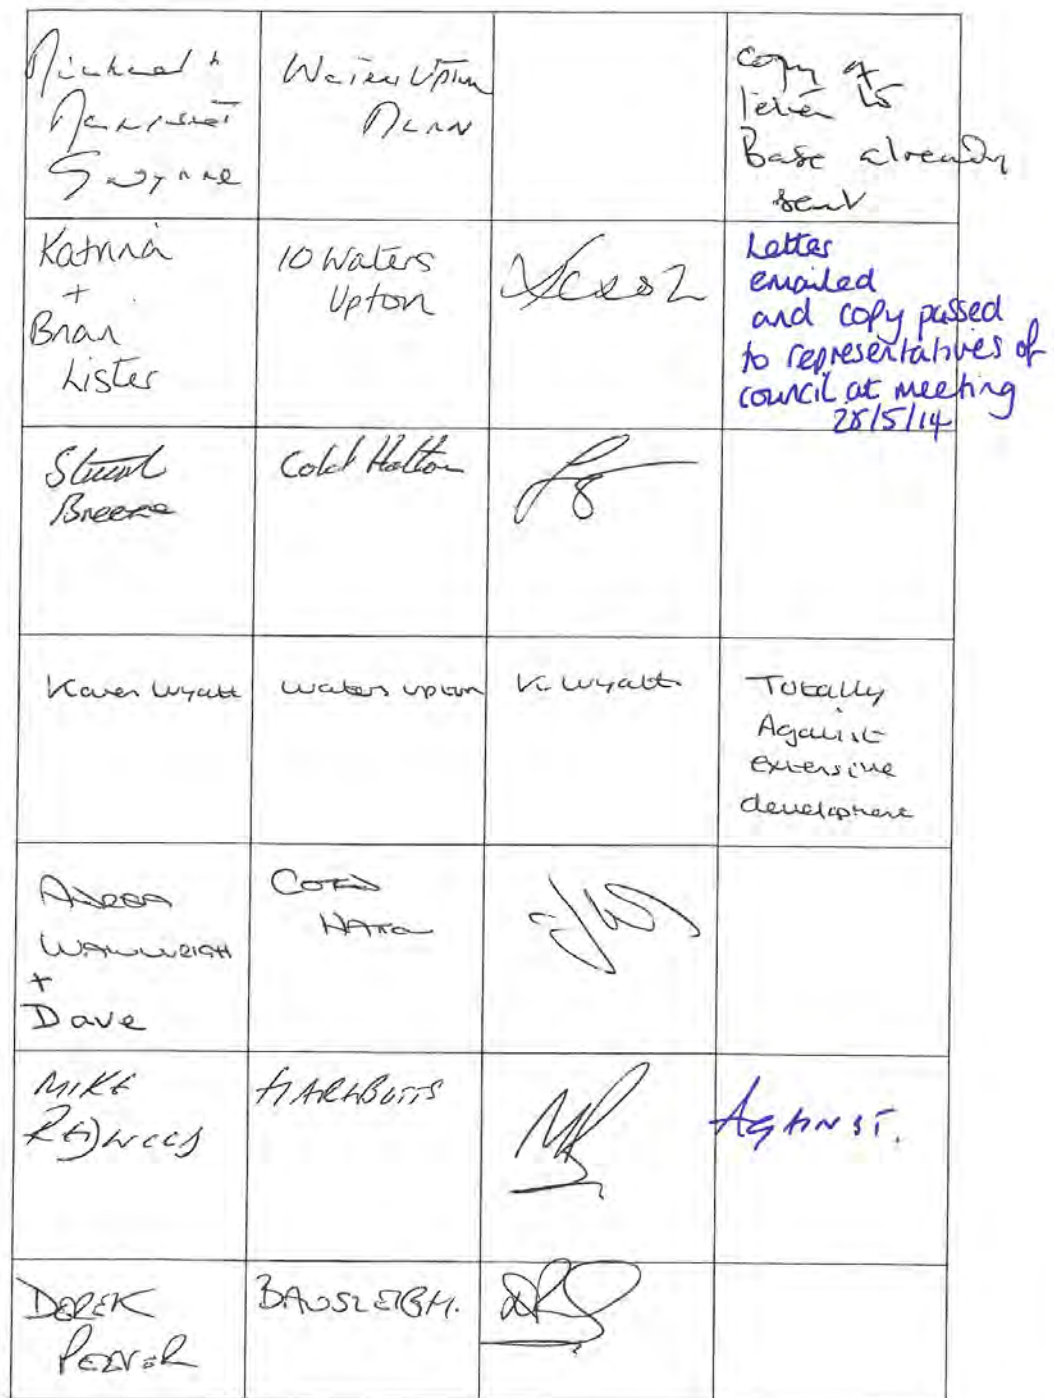 Michael &
Margaret
Gwynne
Waters Upton
copy of
letter to
Base already
sent
Katrina
+
Brian
Lister
10 Waters
Upton
Letter
emailed
and copy passed
to representatives of
council at meeting
28/5/14
Stuart
Breeze
Cold Hatton
Karen Wyatt
Waters Upton
K. Wyatt
Totally
Against
extensive
development
+
Dave
Cold
MIKE
AGAINST.
DEREK